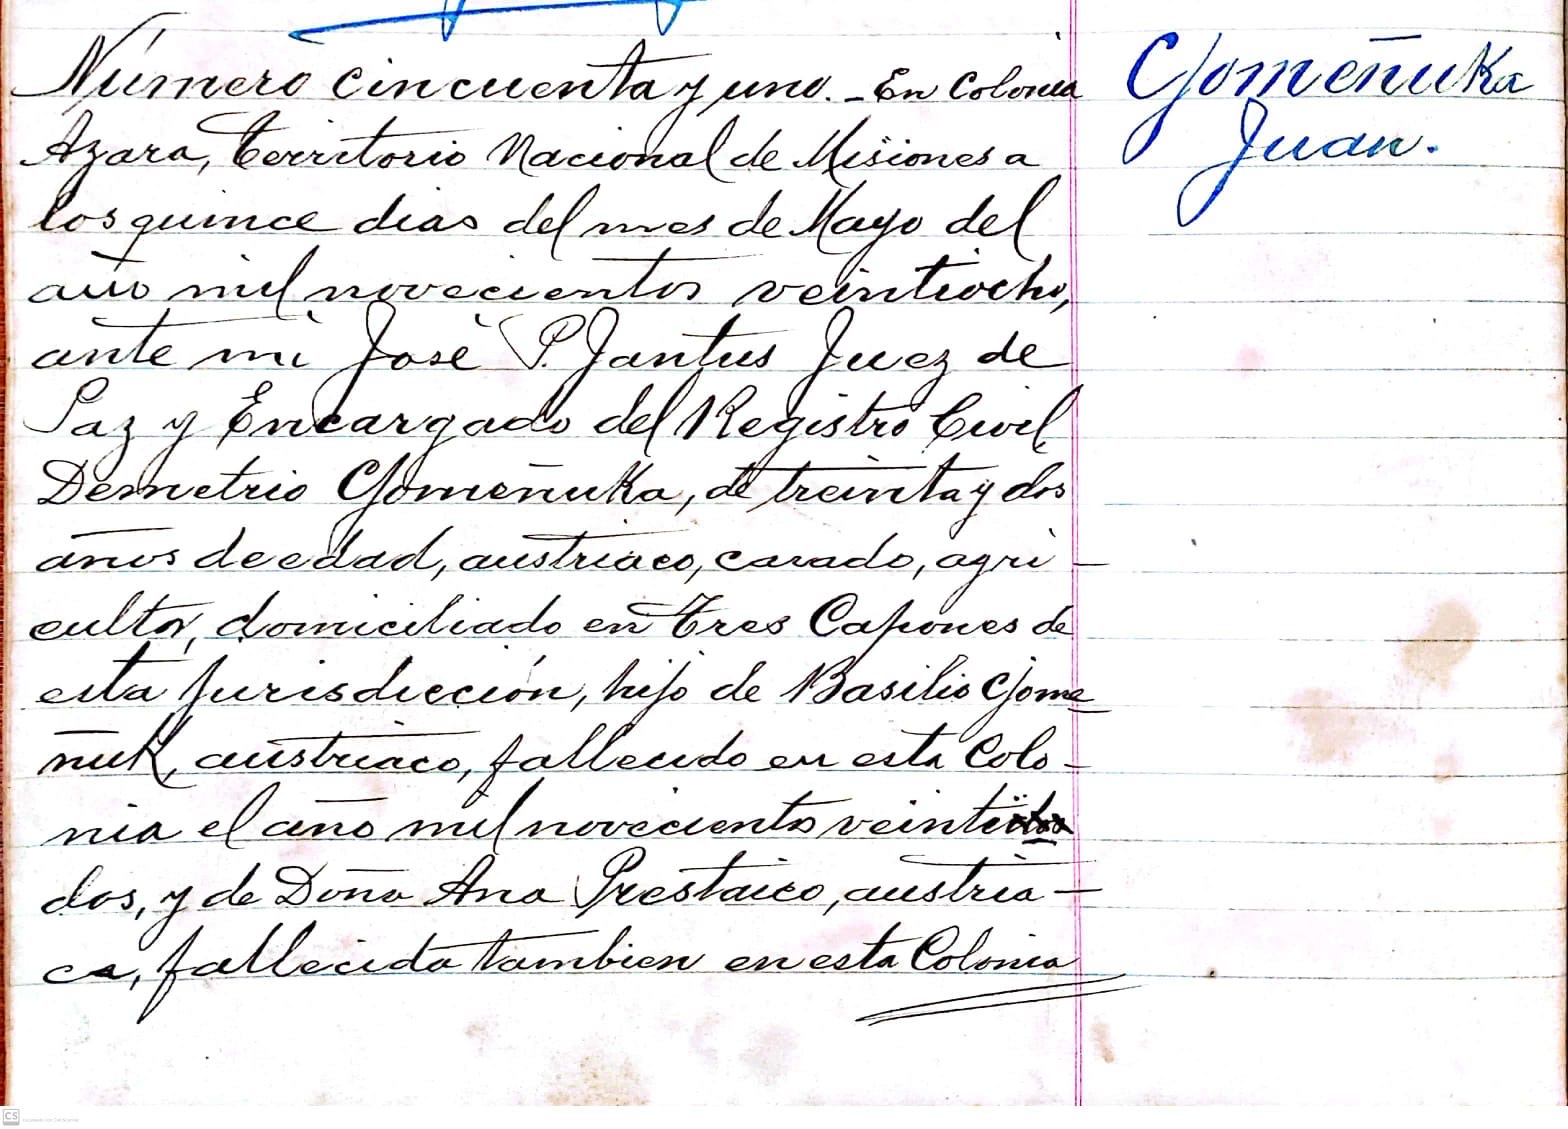 Número cincuenta y uno. - En Colonia
Azara, Territorio Nacional de Misiones a
los quince dias del mes de Mayo del
año mil novecientos veintiocho,
ante mi José P. Jantus Juez de
Paz y Encargado del Registro Civil,
Demetrio Gomeñuka, de treinta y dos
años de edad, austriaco, casado, agri-
cultor, domiciliado en Tres Capones de
esta jurisdicción, hijo de Basilio Gome-
ñuk, austriaco, fallecido en esta Colo-
nia el año mil novecientos veinti
dos, y de Doña Ana Prestaico, austria-
ca, fallecida tambien en esta Colonia
Gomeñuka
Juan.
CS